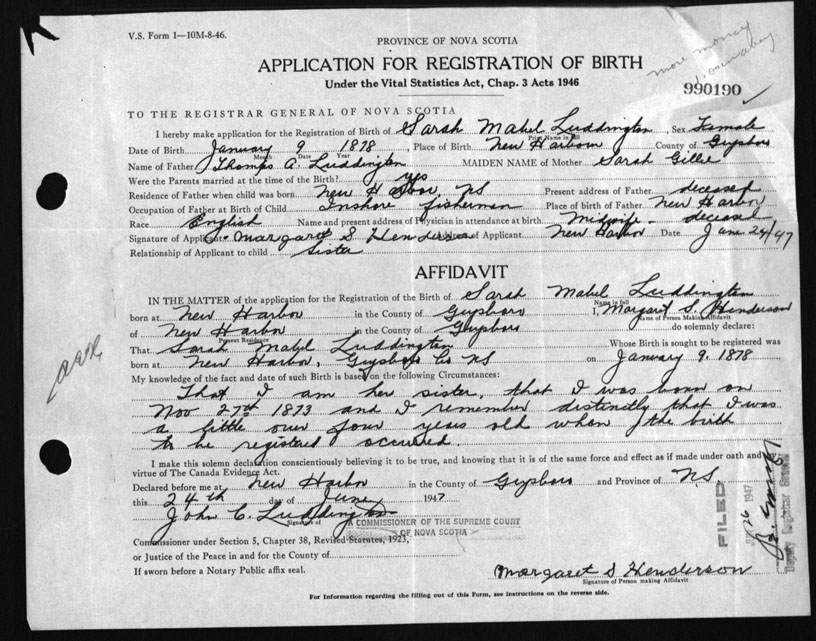 V.S. Form 1—10M-8-46.
PROVINCE OF NOVA SCOTIA
APPLICATION FOR REGISTRATION OF BIRTH
Under the Vital Statistics Act, Chap. 3 Acts 1946
more money
990190 ✓
TO THE REGISTRAR GENERAL OF NOVA SCOTIA
I hereby make application for the Registration of Birth of Sarah Mabel Luddington, Sex Female
Print Name in full
Date of Birth January 9 1878, Place of Birth New Harbour County of Guysboro
Month Date Year
Name of Father Thomas A. Luddington MAIDEN NAME of Mother Sarah Gillie
Were the Parents married at the time of the Birth? yes
Residence of Father when child was born New Harbor, NS Present address of Father deceased
Occupation of Father at Birth of Child Inshore fisherman Place of birth of Father New Harbor
Race English Name and present address of Physician in attendance at birth Midwife - deceased
Signature of Applicant Margaret S Henderson of Applicant New Harbor Date June 24/47
Relationship of Applicant to child Sister
AFFIDAVIT
IN THE MATTER of the application for the Registration of Birth of Sarah Mabel Luddington
Name in full
born at New Harbor in the County of Guysboro I, Margaret S. Henderson
Name of Person Making Affidavit
of New Harbor in the County of Guysboro do solemnly declare:
Present Residence
That Sarah Mabel Luddington Whose Birth is sought to be registered was
born at New Harbor, Guysboro Co NS on January 9, 1878
My knowledge of the fact and date of such Birth is based on the following Circumstances:
That I am her sister, that I was born on
Nov 27th 1873 and I remember distinctly that I was
a little over four years old when the birth
to be registered occurred.
I make this solemn declaration conscientiously believing it to be true, and knowing that it is of the same force and effect as if made under oath and by
virtue of The Canada Evidence Act.
Declared before me at New Harbor in the County of Guysboro and Province of N.S
this 24th day of June 1947
John C. Luddington
Signature of
A COMMISSIONER OF THE SUPREME COURT
OF NOVA SCOTIA
Commissioner under Section 5, Chapter 38, Revised Statutes, 1923,
or Justice of the Peace in and for the County of
If sworn before a Notary Public affix seal.
Margaret S Henderson
Signature of Person making Affidavit
For Information regarding the filling out of this Form, see instructions on the reverse side.
FILED
26 1947
Deputy Registrar General